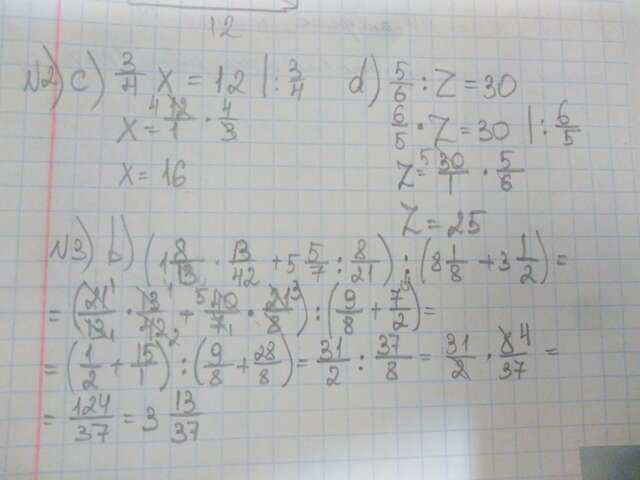 12
N2) c) 3/4 x = 12 | : 3/4
x = 12/1 · 4/3
4
x = 16
d) 5/6 : Z = 30
6/5 · Z = 30 | : 6/5
Z = 30/1 · 5/6
5
Z = 25
N3) b) (1 8/13 · 13/42 + 5 5/7 : 8/21) : (8 1/8 + 3 1/2) =
= (21/13 · 13/42 + 40/7 · 21/8) : (9/8 + 7/2) =
= (1/2 + 15/1) : (9/8 + 28/8) = 31/2 : 37/8 = 31/2 · 8/37 =
= 124/37 = 3 13/37